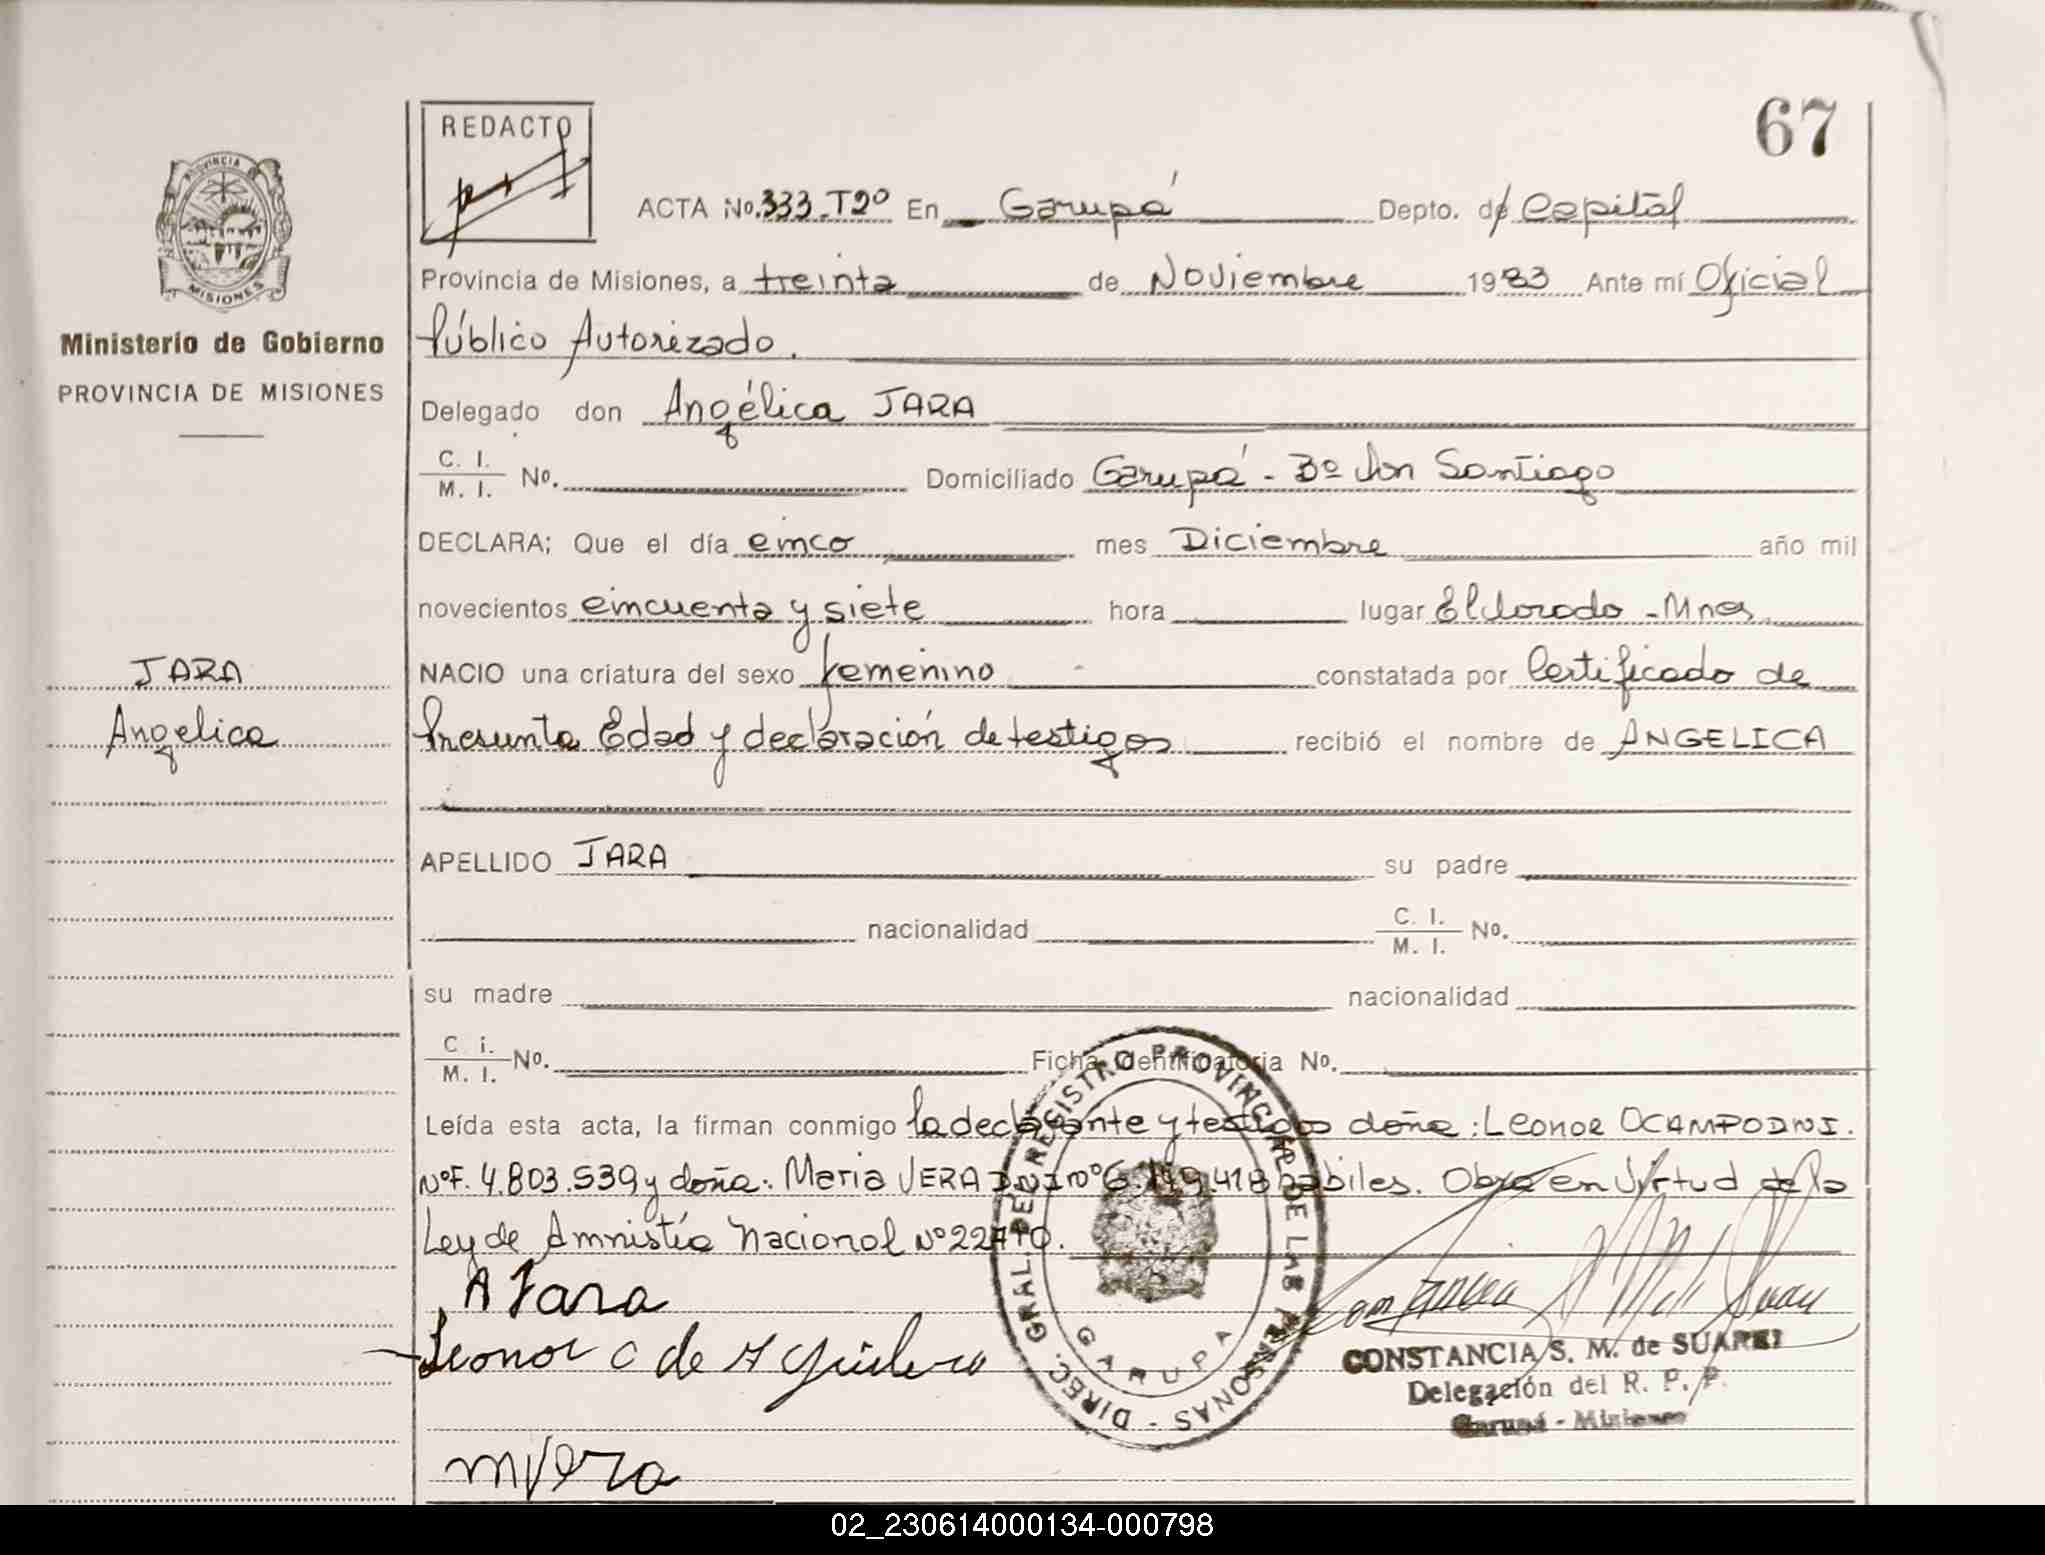 67
REDACTO
PROVINCIA
MISIONES
Ministerio de Gobierno
PROVINCIA DE MISIONES
ACTA No. 333-T2º En Garupá Depto. de Capital
Provincia de Misiones, a treinta de Noviembre 1983 Ante mí Oficial
Público Autorizado.
Delegado don Angélica JARA
C. I.
M. I. No. Domiciliado Garupá - Bº Don Santiago
DECLARA; Que el día cinco mes Diciembre año mil
novecientos cincuenta y siete hora lugar Eldorado - Mnes.
JARA
NACIO una criatura del sexo femenino constatada por Certificado de
Angelica
Presunta Edad y declaración de testigos recibió el nombre de ANGELICA
APELLIDO JARA su padre
nacionalidad C. I.
M. I. No.
su madre nacionalidad
C i.
M. I. No. Ficha Identificatoria No.
Leída esta acta, la firman conmigo la declarante y testigos doña: Leonor OCAMPO DNI.
NºF. 4.803.539 y doña: Maria VERA DNI nº 6. 419 hábiles. Obra en Virtud de la
Ley de Amnistía Nacional Nº
A Jara
Leonor O de Aguilera
DIREC. GRAL. DEL REGISTRO PROVINCIAL DE LAS PERSONAS -
GARUPA
CONSTANCIA S. M. de SUAREZ
Delegación del R. P. P.
Garupá - Misiones
m Vera
02_230614000134-000798